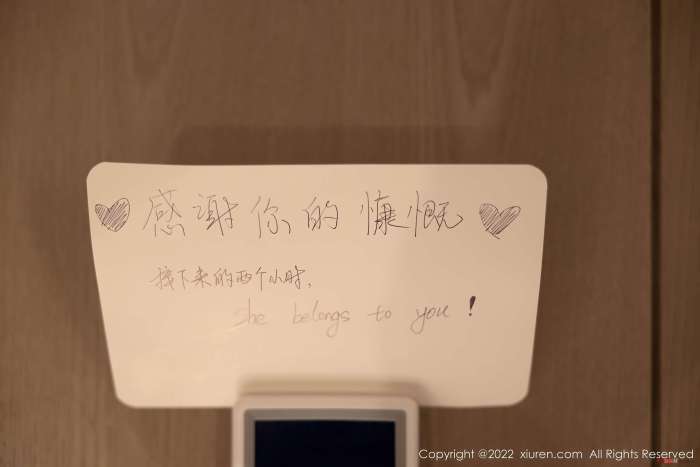 感谢你的慷慨
接下来的两个小时,
She belongs to you!
Copyright @2022 xiuren.com All Rights Reserved